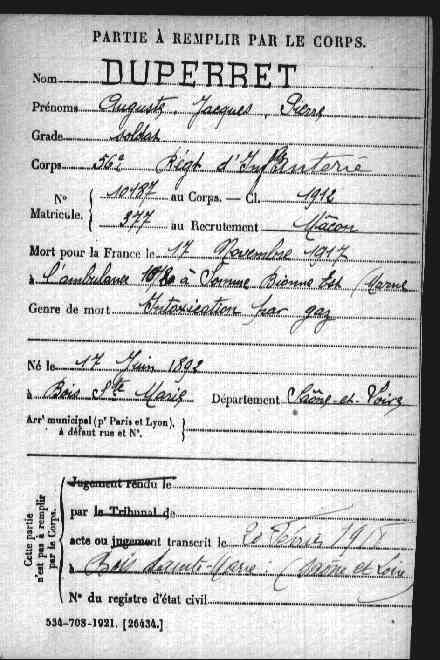 PARTIE À REMPLIR PAR LE CORPS.
Nom DUPERRET
Prénoms Auguste, Jacques, Pierre
Grade soldat
Corps 56e Régt d'Infanterie
N° Matricule. { 10487 au Corps. — Cl. 1912
377 au Recrutement Mâcon
Mort pour la France le 17 Novembre 1917
à l'ambulance à Somme Bionne Est (Marne
Genre de mort Intoxication par gaz
Né le 17 Juin 1892
à Bois Ste Marie Département Saône-et-Loire
Arrt municipal (pr Paris et Lyon), à défaut rue et N°. }
Cette partie n'est pas à remplir par le Corps. { Jugement rendu le
par le Tribunal de
acte ou jugement transcrit le 20 Février
à Bois Sainte-Marie : (Saône et Loire
N° du registre d'état civil
534-708-1921. [26434.]